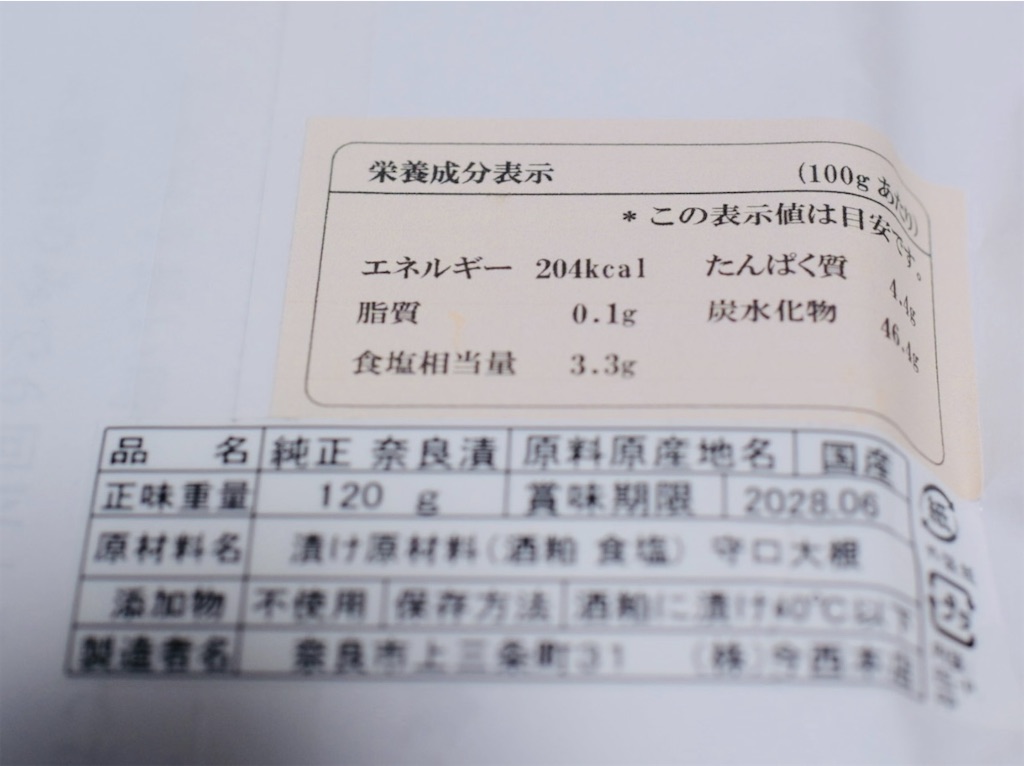 栄養成分表示 (100g あたり)
*この表示値は目安です。
エネルギー 204kcal たんぱく質 4.4g
脂質 0.1g 炭水化物 46.4g
食塩相当量 3.3g
品名 純正 奈良漬 原料原産地名 国産
正味重量 120 g 賞味期限 2028.06
原材料名 漬け原材料(酒粕 食塩) 守口大根
添加物 不使用 保存方法 酒粕に漬け40℃以下
製造者名 奈良市上三条町31 (株)今西本店
プラ